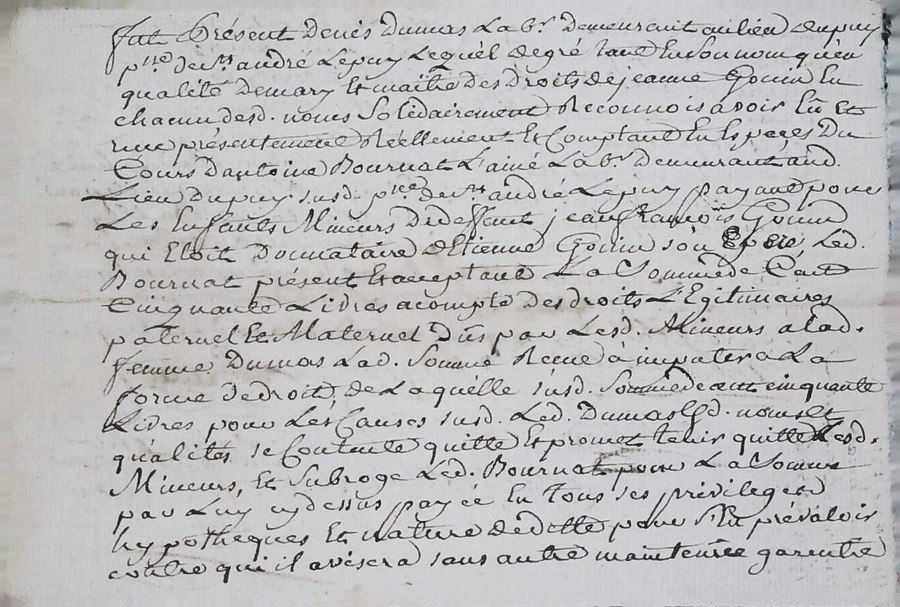 fut Présent denis Dumas La br. demeurant au lieu dupuy
psse de st andré Lepuy Lequel degré tant En son nom qu'en
qualité Demary Et maitre des droits de jeanne Gonin En
chacun desd. noms Solidairement Reconnois avoir Eü Et
reçue présentement Réellement Et Comptant En Espèces Du
Cours d'antoine Bournat L'ainé La br. demeurant aud.
Lieu Dupuy susd. psse de st andré Lepuy payant pour
Les Enfants Mineurs de deffunt jean françois Gonin
qui Etoit Donnataire d'Etienne Gonin son père Led.
Bournat présent Et acceptant La Somme de Cent
Cinquante Livres acompte des droits L'Egitimaires
paternel Et Maternel Dus par Lesd. Mineurs a lad.
femme Dumas Lad. Somme Recue à imputer a La
forme de droit, de Laquelle susd. Somme de cent cinquante
Livres pour Les Causes susd. Led. Dumas Esd. noms et
qualités se Contente quitte Et promet tenir quitte Lesd.
Mineurs, Et Subroge Led. Bournat pour La Somme
par Luy cy dessus payée En tous ses privileges
hypotheques Et nature de ditte pour s'En prévalois
contre qui il avisera sans autre maintenüe garentie